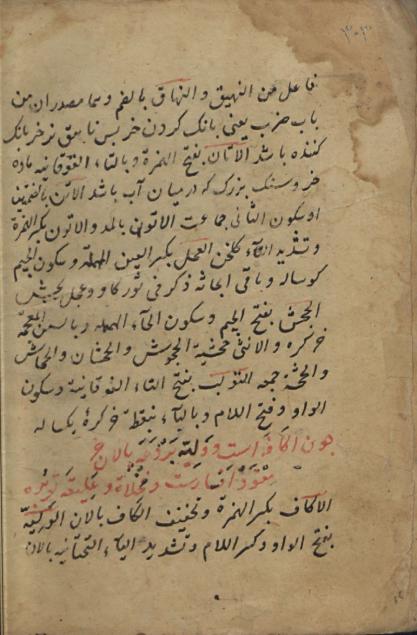 فاعل من النهیق و النهاق بالضم و هما مصدران من
باب ضرب یعنی بانک کردن خر پس ناهق نر خر بانک
کننده باشد الاتان بفتح الهمزة و بالتاء الفوقانیه ماده
خر و سنک بزرک که در میان آب باشد الاتن بالضمتین
او سکون الثانی جماعت الاتون بالمد و الاتون بکسر الهمزة
و تشدید التاء کلخن العجل بکسر العین المهملة و سکون الجیم
کوساله و باقی ابحاثه ذکر فی ثور کاو و عجل
الجحش بفتح الجیم و سکون الحاء المهمله و بالشین المعجمة
خر کره و الانثی جحشة الجحوش و الجحشان و الجحاش
و الجحشة جمعه التولب بفتح التاء الفوقانیة و سکون
الواو و فتح اللام و بالباء بنقطة خر کرهٔ یکساله
چون اکافست و ولیّه بردعه پالان خر
مقود افسارست و مخلاة و علیقه توبره
الاکاف بکسر الهمزة و تخفیف الکاف پالان الولیّة
بفتح الواو و کسر اللام و تشدید الیاء التحتانیه پالان